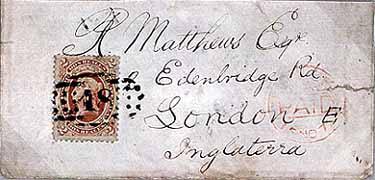 R Matthews Esqr
2 Edenbridge Rd
London E
Inglaterra
18
PAID